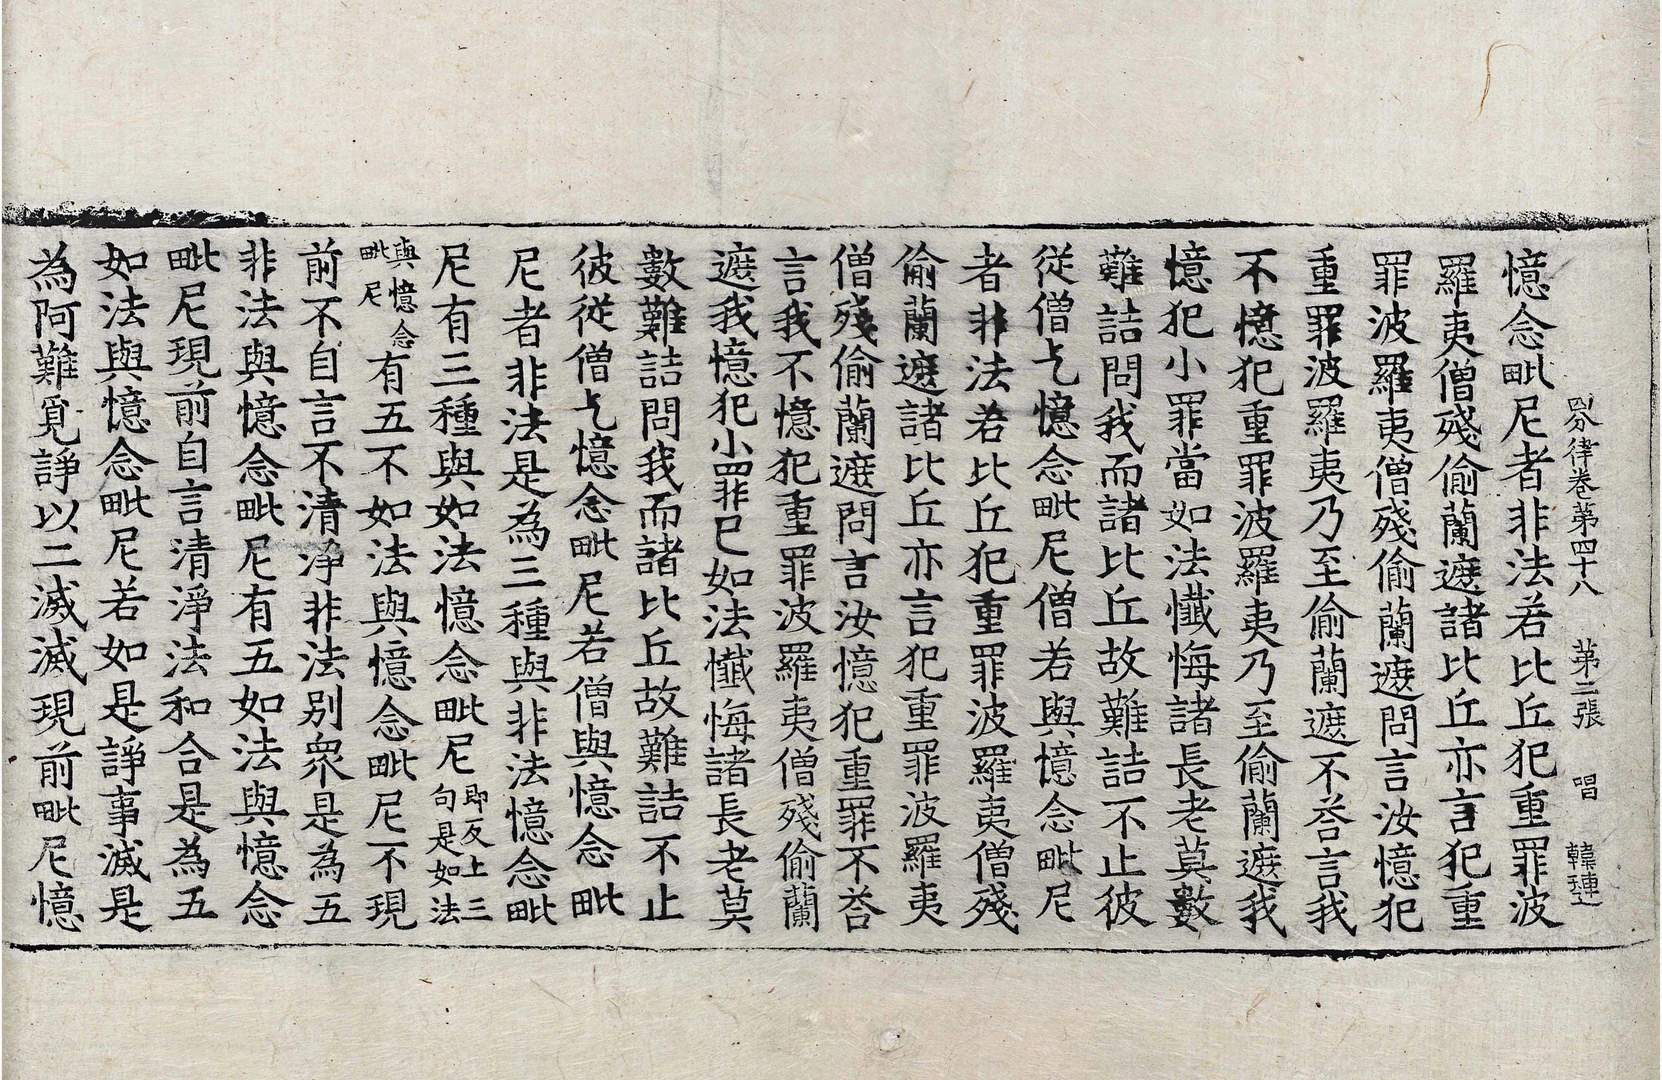 四分律卷第四十八　第二張　唱　韓璉
憶念毗尼者非法若比丘犯重罪波
羅夷僧殘偷蘭遮諸比丘亦言犯重
罪波羅夷僧殘偷蘭遮問言汝憶犯
重罪波羅夷乃至偷蘭遮不荅言我
不憶犯重罪波羅夷乃至偷蘭遮我
憶犯小罪當如法懺悔諸長老莫數
難詰問我而諸比丘故難詰不止彼
從僧乞憶念毗尼僧若與憶念毗尼
者非法若比丘犯重罪波羅夷僧殘
偷蘭遮諸比丘亦言犯重罪波羅夷
僧殘偷蘭遮問言汝憶犯重罪不荅
言我不憶犯重罪波羅夷僧殘偷蘭
遮我憶犯小罪已如法懺悔諸長老莫
數難詰問我而諸比丘故難詰不止
彼從僧乞憶念毗尼若僧與憶念毗
尼者非法是為三種與非法憶念毗
尼有三種與如法憶念毗尼即反上三句是如法
與憶念毗尼有五不如法與憶念毗尼不現
前不自言不清淨非法別衆是為五
非法與憶念毗尼有五如法與憶念
毗尼現前自言清淨法和合是為五
如法與憶念毗尼若如是諍事滅是
為阿難覓諍以二滅滅現前毗尼憶